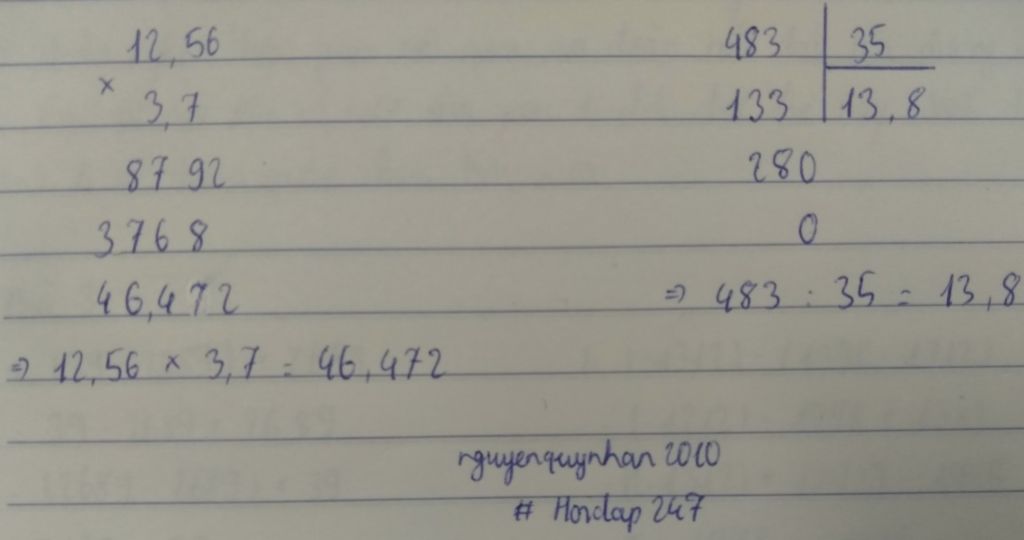 12,56
×
3,7
87 92
3768
46,472
⇒ 12,56 × 3,7 = 46,472
483 | 35
133 | 13,8
280
0
⇒ 483 : 35 = 13,8
nguyenquynhan 2010
# Hoidap 247